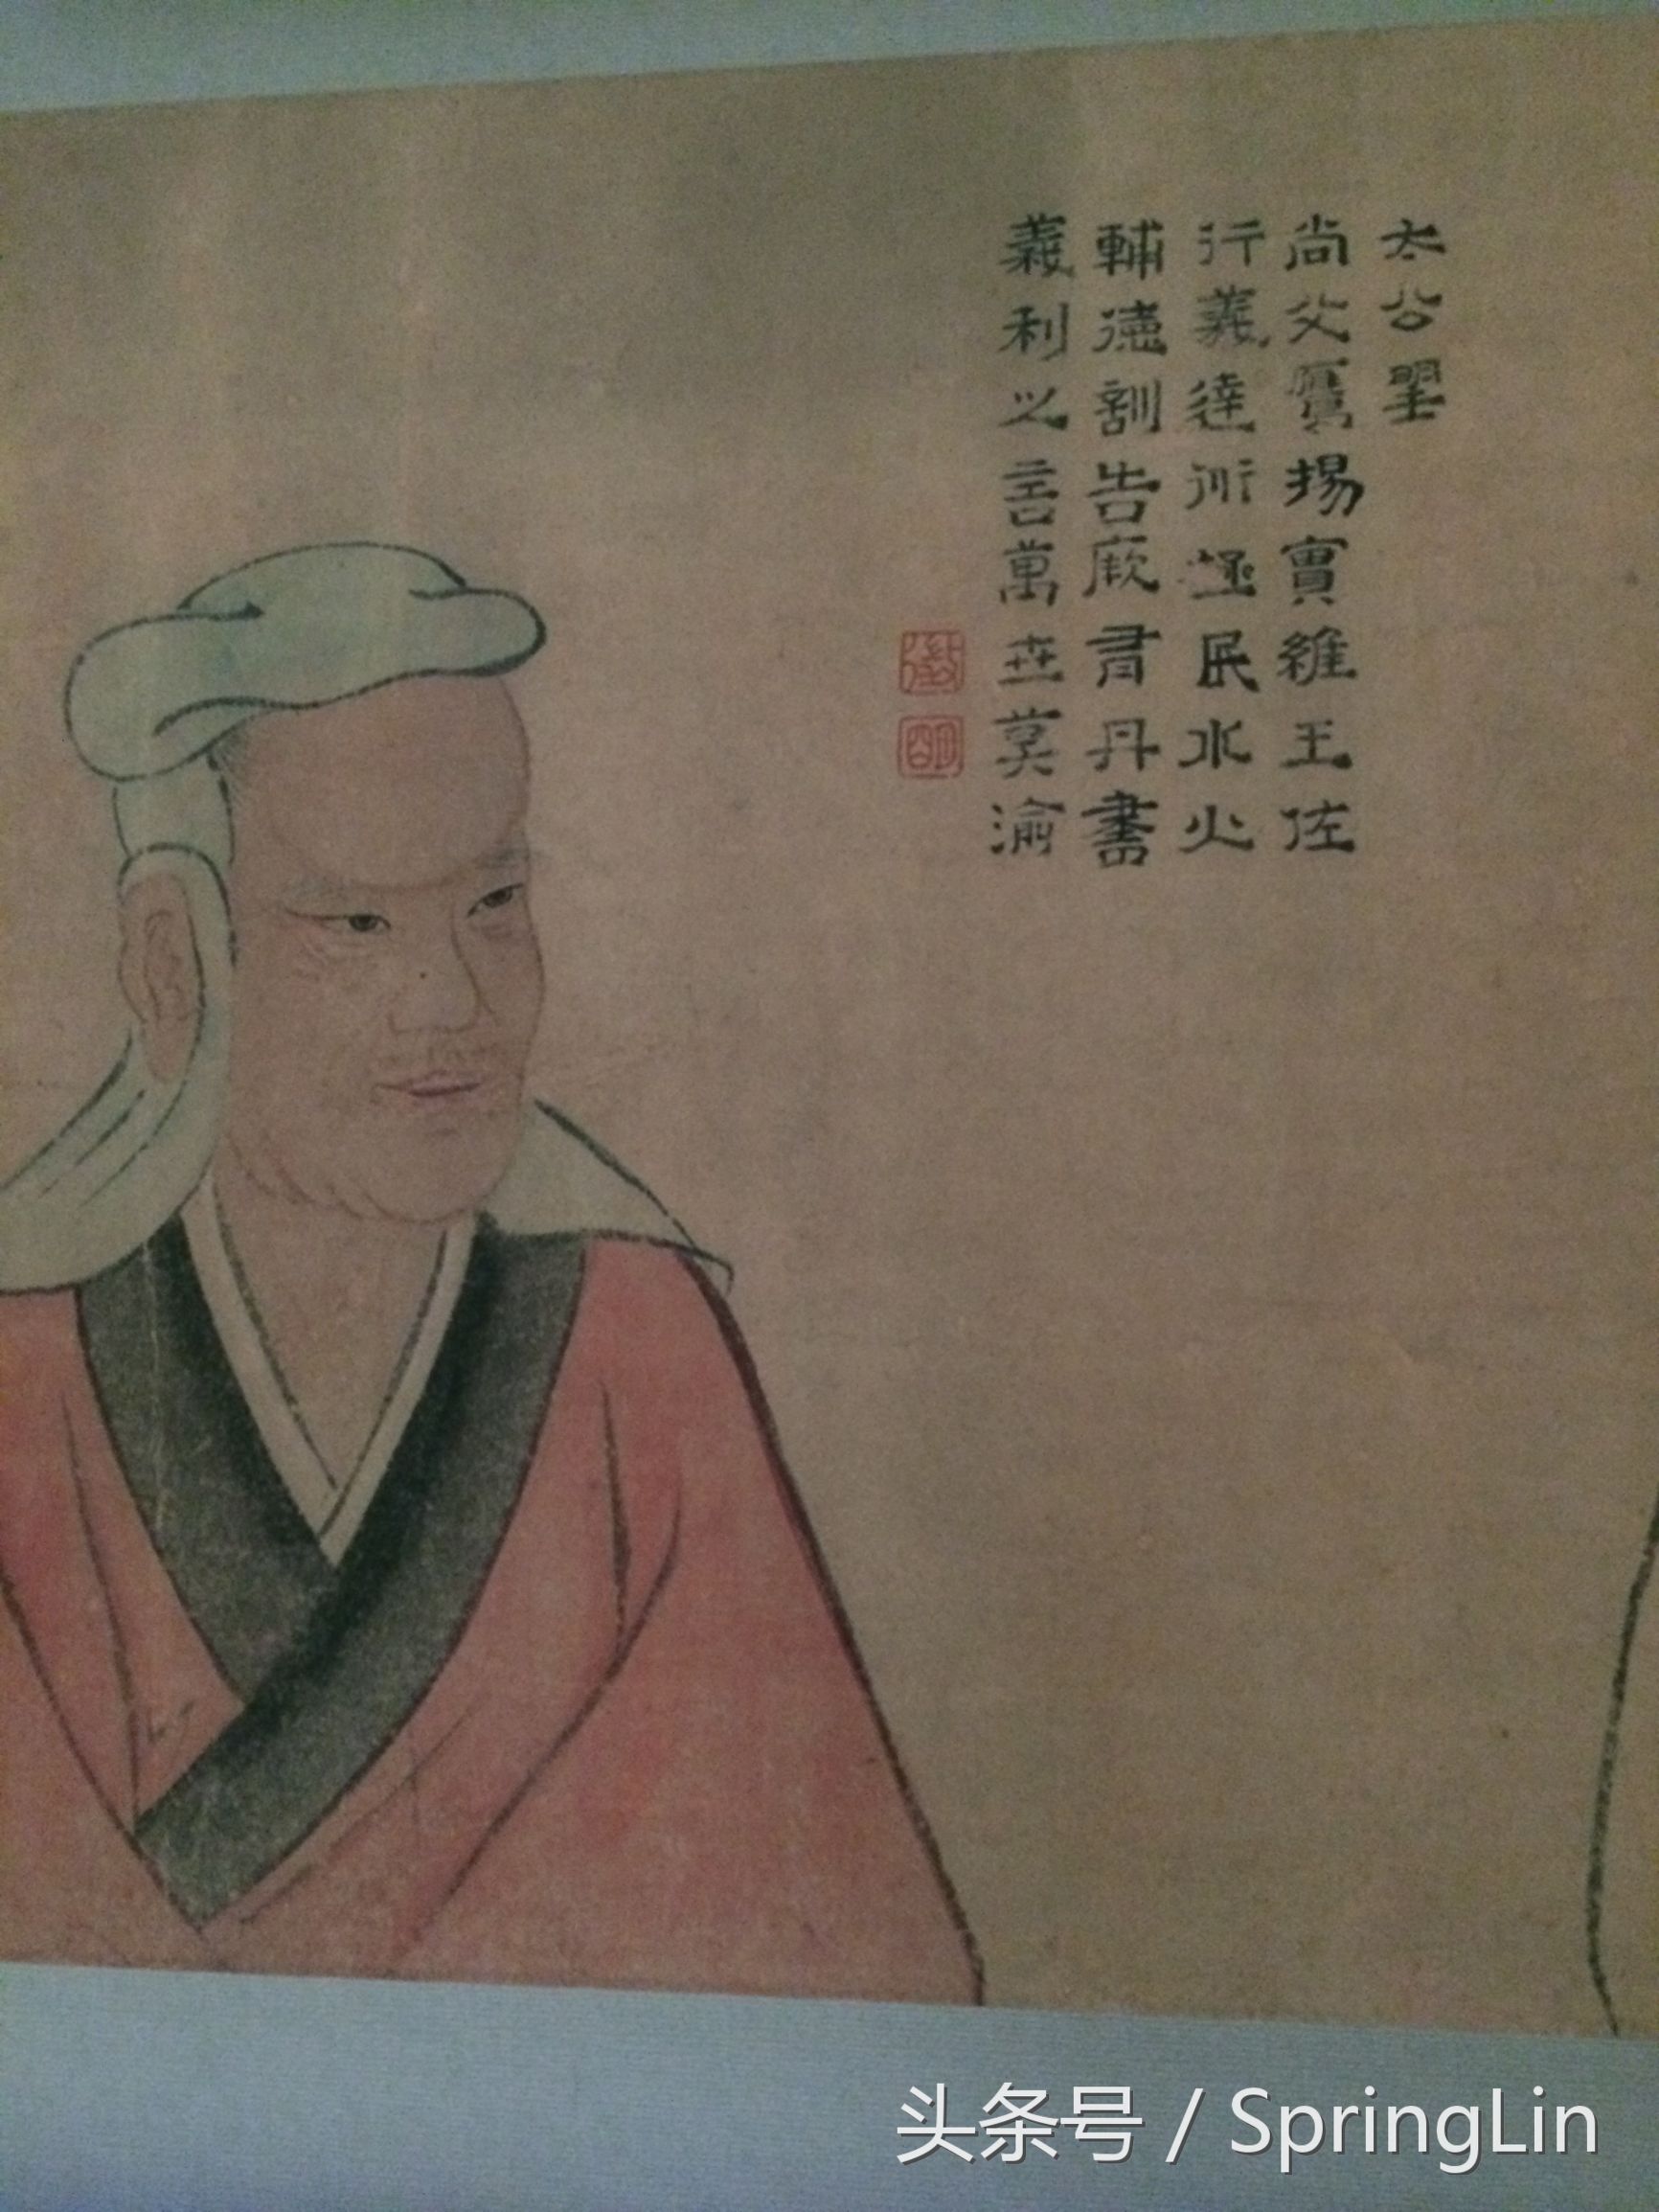 太公望
尚父鷹揚實維王佐
行義達拯民水火
輔德訓告厥有丹書
義利之言萬世莫渝
头条号 / SpringLin